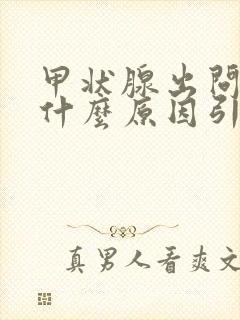 甲状腺出問
什麼原因引
真男人看爽文